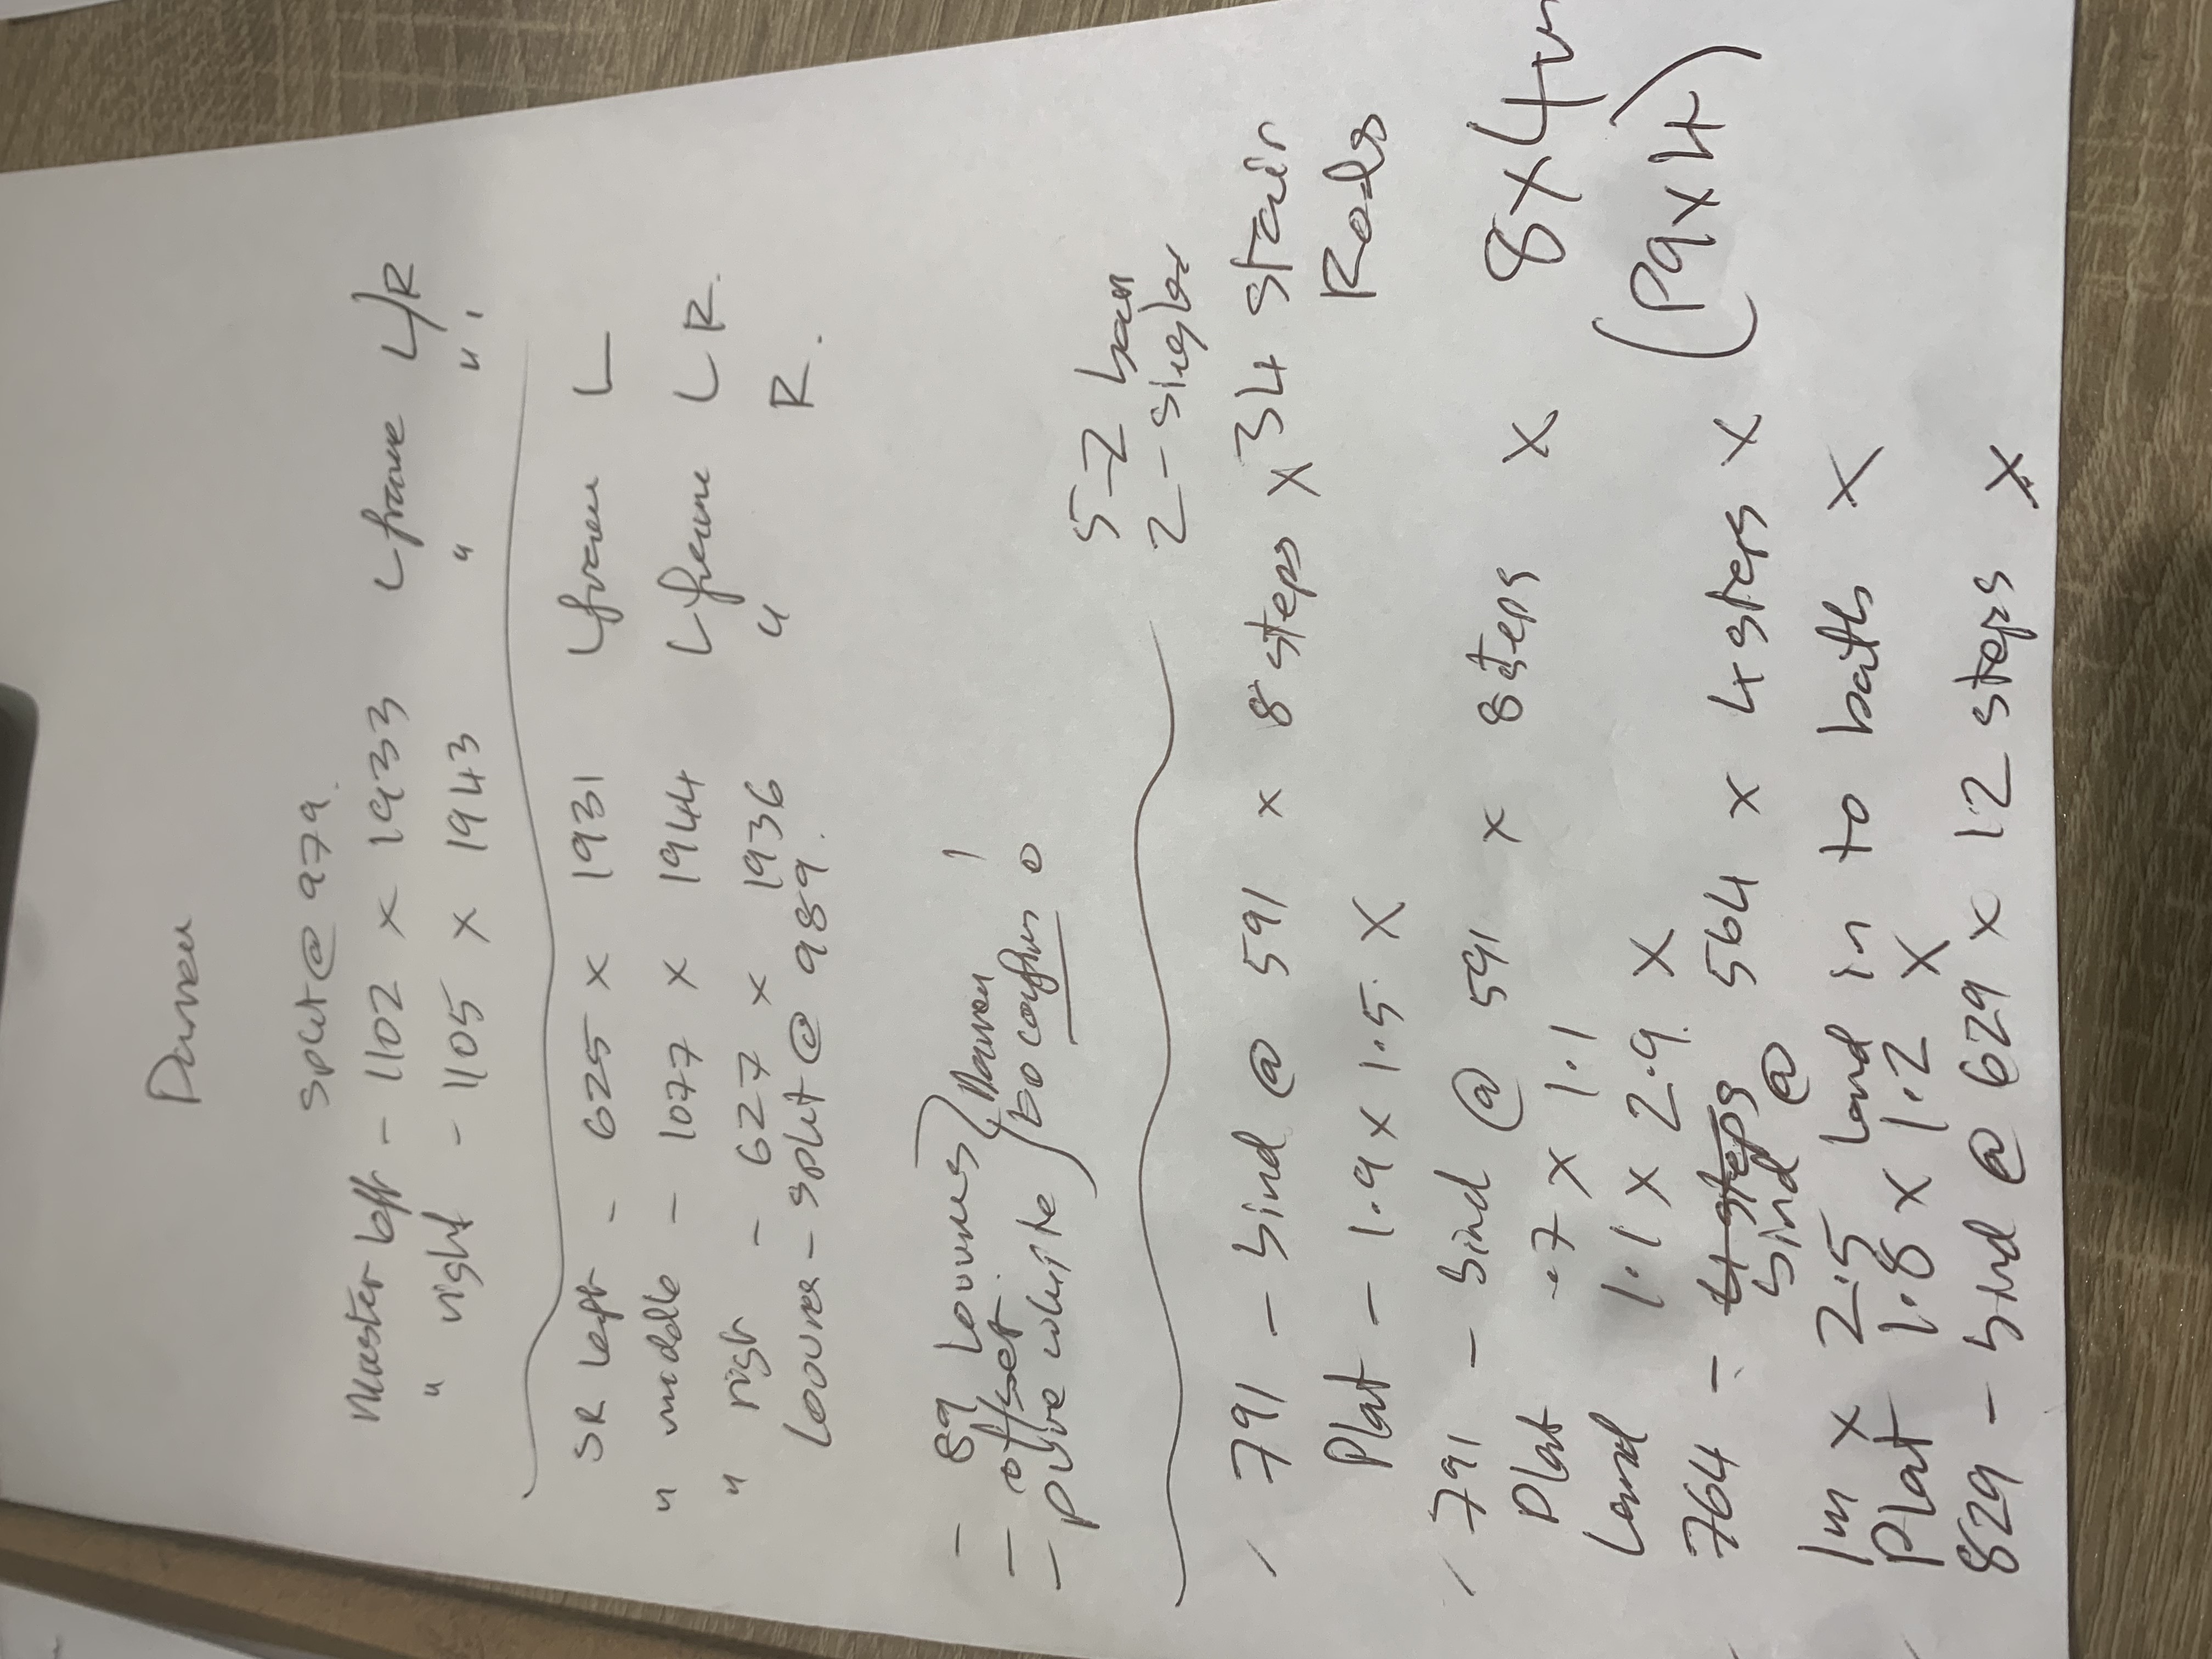 Darren
split @ 979.
Master left - 1102 x 1933 L frame L/R
" right - 1105 x 1943 " " "
SR left - 625 x 1931 L frame L
" middle - 1077 x 1944 L frame L R.
" right - 627 x 1936 " R.
Louvres - split @ 989.
- 89 Louvres
- offset.
- pure white
Darren
to confirm
5-7 bar
2 - singles
791 - bind @ 591 x 8 steps x 34 stair Rods
Plat - 1.9 x 1.5. X
791 - bind @ 591 x 8 steps x 8x4m
Plat .7 x 1.1
Land 1.1 x 2.9. X (P9x4)
764 - 4 steps bind @ 564 x 4 steps x
1m x 2.5 Land in to baths X
Plat 1.8 x 1.2 X
829 - bind @ 629 x 12 steps x